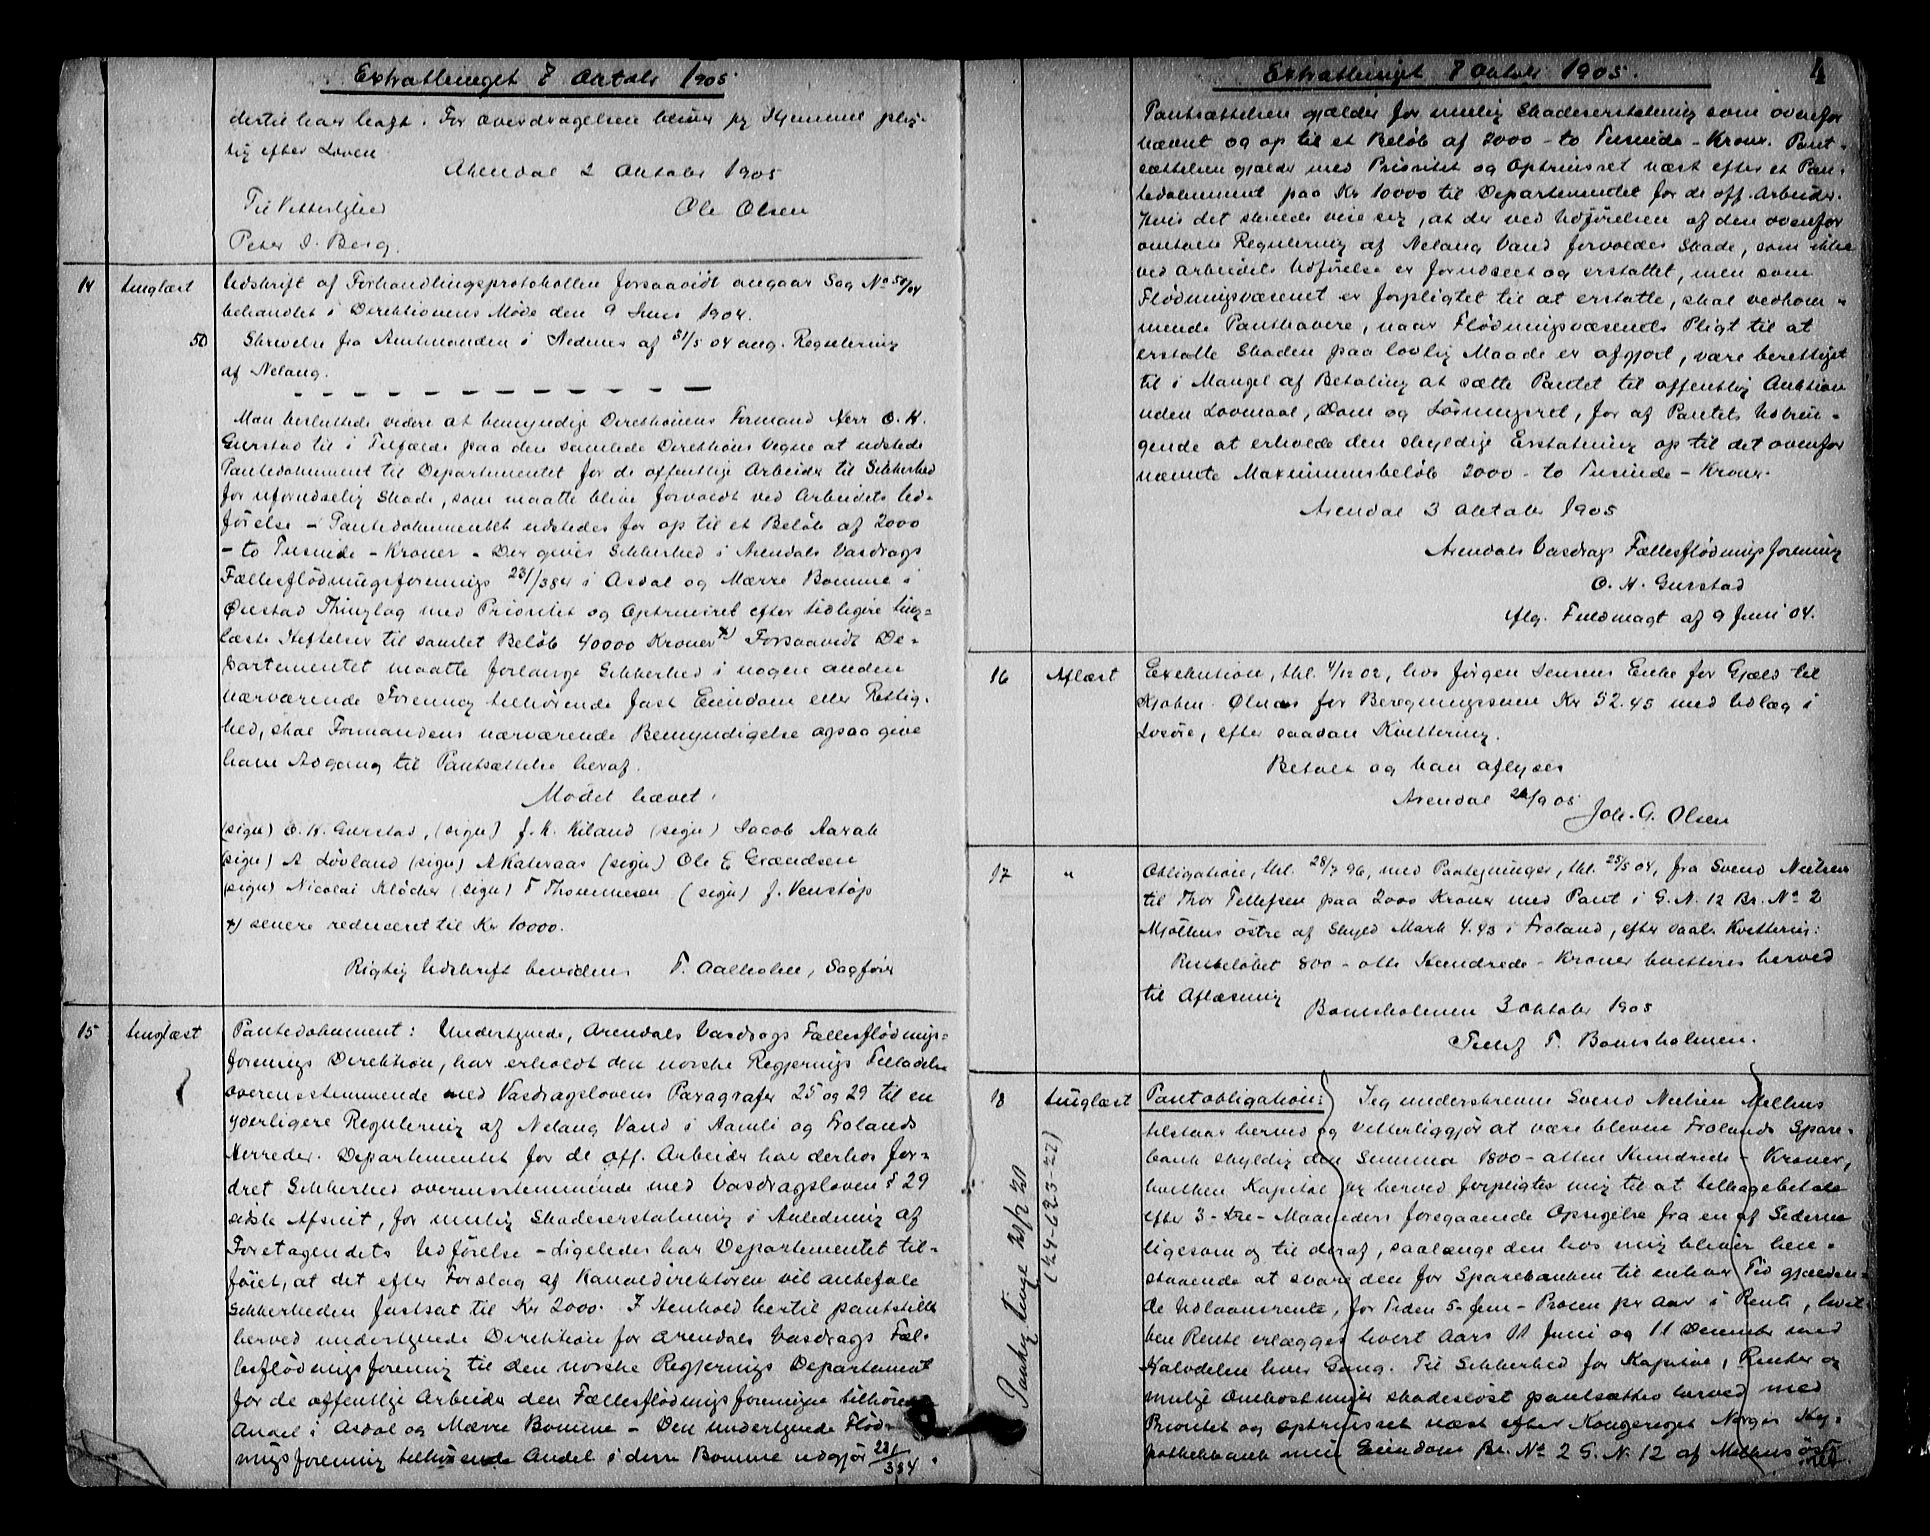 Extrathinget 7 Oktobr 1905
dertil har havt. For overdragelsen bliver jeg Hjemmel plig-
tig efter Loven
Arendal 2 Oktobr 1905
Til Vitterlighed Ole Olsen
Peter I. Berg.
14 tinglæst Udskrift af Forhandlingsprotokollen forsaavidt angaar Sag No 50/04
behandlet i Direktionens Møde den 9 Juni 1904.
50 Skrivelse fra Amtmanden i Nedenes af 31/5 04 ang. Regulering
af Nelaug.
Man besluttede videre at bemyndige Direktionens Formand Herr O. H.
Gurstad til i Tilfælde paa den samlede Direktions Vegne at udstede
Pantedokument til Departementet for de offentlige Arbeider til Sikkerhed
for uforudseelig Skade, som maatte blive forvoldt ved Arbeidets Ud-
førelse – Pantedokumentet udstedes for op til et Beløb af 2000
– to Tusinde – Kroner – Der gives Sikkerhed i Arendals Vasdrags
Fællesflødningsforenings 23/384 i Asdal og Mærre Bomme i
Øiestad Thinglag med Prioritet og Optrinsret efter tidligere ting-
læste Heftelser til samlet Beløb 40000 Kroner x) Forsaavidt De-
partementet maatte forlange Sikkerhed i nogen anden
nærværende Forening tilhørende fast Eiendom eller Rettig-
hed, skal Formandens nærværende Bemyndigelse ogsaa give
ham Adgang til Pantsættelse heraf.
Mødet hævet.
(sign) O. H. Gurstad, (sign) J. K. Kiland (sign) Jacob Aarak
(sign) A Løvland (sign) A Kateraas (sign) Ole E Grændsen
(sign) Nicolai Kløcker (sign) T Thommesen (sign) J. Venstøp
x) senere reduceret til Kr 10000.
Rigtig Udskrift bevidnes T. Aalholm, Sagfører
15 tinglæst Pantedokument: Undertegnede, Arendals Vasdrags Fællesflødnings-
forenings Direktion, har erholdt den norske Regjerings Tilladelse
overensstemmende med Vasdragslovens Paragrafer 25 og 29 til en
yderligere Regulering af Nelaug Vand i Aamli og Frolands
Herreder. Departementet for de off. Arbeider har derhos for-
dret Sikkerhed overensstemmende med Vasdragsloven § 29
sidste Afsnit, for mulig Skadeserstatning i Anledning af
Foretagendets Udførelse – Ligeledes har Departementet til-
føiet, at det efter Forslag af Kanaldirektøren vil anbefale
Sikkerheden fastsat til Kr 2000. I Henhold hertil pantstille
herved undertegnede Direktion for Arendals Vasdrags Fæl-
lesflødningsforening til den norske Regjerings Departement
for de offentlige Arbeider den Fællesflødningsforeningen tilhørende
Andel i Asdal og Mærre Bomme – Den undertegnede Flød-
ningsforening tilhørende Andel i disse Bomme udgjør 23/384.
Extrathinget 7 Oktobr 1905. 4
Pantsættelsen gjælder for mulig Skadeserstatning som ovenfor
nævnt og op til et Beløb af 2000 – to Tusinde – Kroner. Pant-
sættelsen gjælder med Prioritet og Optrinsret næst efter et Pan-
tedokument paa Kr 10000 til Departementet for de off. Arbeider.
Hvis det skulde vise sig, at der ved Udførelsen af den ovenfor
omtalte Regulering af Nelaug Vand forvoldes Skade, som ikke
ved Arbeidets Udførelse er forudseet og erstattet, men som
Flødningsvæsenet er forpligtet til at erstatte, skal vedkom-
mende Panthavere, naar Flødningsvæsenets Pligt til at
erstatte Skaden paa lovlig Maade er afgjort, være berettiget
til i Mangel af Betaling at sætte Pantet til offentlig Auktion
uden Lovmaal, Dom og Løsningsret, for af Pantets Udbrin-
gende at erholde den skyldige Erstatning op til det ovenfor
nævnte Maximumsbeløb 2000 – to Tusinde – Kroner.
Arendal 3 Oktobr 1905
Arendals Vasdrags Fællesflødningsforening
O. H. Gurstad
iflg. Fuldmagt af 9 Juni 04.
16 Aflæst Exekution, thl. 4/12 02, hos Jørgen Jensens Enke for Gjæld til
Kjøbm. Olsen for Beregningssum Kr 52.45 med Udlæg i
Løsøre, efter saadan Kvittering.
Betalt og kan aflyses
Arendal 26/9 05
Joh. G. Olsen
17 " Obligation, thl. 28/7 96, med Paategninger, thl. 25/5 04, fra Svend Nielsen
til Thor Tellefsen paa 2000 Kroner med Pant i G. N. 12 Br. No 2
Mjølhus østre af Skyld Mark 4.43 i Froland, efter saal. Kvittering:
Restbeløbet 800 – otte Hundrede – Kroner kvitteres herved
til Aflæsning
Bomsholmen 3 Oktobr 1905
Tellef T. Bomsholmen.
18 tinglæst Pantobligation: Jeg underskrevne Svend Nielsen Mølhus
tilstaar herved og vitterliggjør at være bleven Frolands Spare-
bank skyldig den Summa 1800 – atten Hundrede – Kroner,
hvilken Kapital jeg herved forpligter mig til at tilbagebetale
efter 3 – tre – Maaneders foregaaende Opsigelse fra en af Siderne
ligesom og til deraf, saalænge den hos mig bliver hen-
staaende at svare den for Sparebanken til enhver Tid gjælden-
de Udlaansrente, for Tiden 5 – fem – Procent pr Aar i Rente, hvil-
ken Rente erlægges hvert Aars 11 Juni og 11 December med
Halvdelen hver Gang. Til Sikkerhed for Kapital, Renter og
mulige Omkostninger skadesløst pantsættes herved med
Prioritet og Optrinsret næst efter Kongeriget Norges Hy-
pothekbank min Eiendom Br. No 2 G. N. 12 af Mølhus østre
(44-625-27)